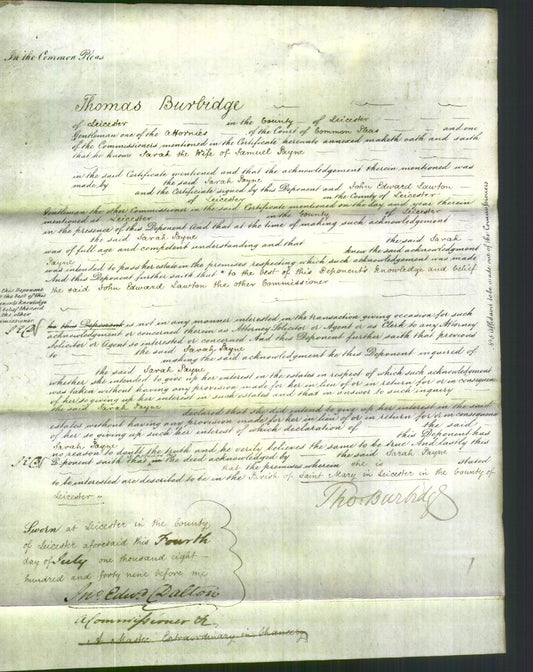 In the Common Pleas
Thomas Burbidge
of Leicester in the County of Leicester
Gentleman one of the Attornies of the Court of Common Pleas and one
of the Commissioners mentioned in the Certificate hereunto annexed maketh oath and saith
that he knows Sarah the Wife of Samuel Payne
in the said Certificate mentioned and that the acknowledgement therein mentioned was
made by the said Sarah Payne
and the Certificate signed by this Deponent and John Edward Lawton
of Leicester in the County of Leicester
Gentleman the other Commissioner in the said Certificate mentioned on the day and year therein
mentioned at Leicester in the County of Leicester
in the presence of this Deponent And that at the time of making such acknowledgement
the said Sarah Payne
was of full age and competent understanding and that the said Sarah
Payne knew the said acknowledgment
was intended to pass her estate in the premises respecting which such acknowledgement was made
And this Deponent further saith that to the best of this Deponents knowledge and belief
the said John Edward Lawton the other Commissioner
this Deponent
the best of this
belief the said
the other
he this Deponent is not in any manner interested in the transaction giving occasion for such
acknowledgment or concerned therein as Attorney Solicitor or Agent or as Clerk to any Attorney
Solicitor or Agent so interested or concerned And this Deponent further saith that previous
to the said Sarah Payne
making the said acknowledgment he this Deponent inquired of
the said Sarah Payne
whether she intended to give up her interest in the estates in respect of which such acknowledgment
was taken without having any provision made for her in lieu of or in return for or in consequence
of her so giving up her interest in such estates and that in answer to such inquiry
the said Sarah Payne declared that she did intend to give up her interest in the said
estates without having any provision made for her in lieu of or in return for or in consequence
of her so giving up such her interest of which declaration of the said
Sarah Payne this Deponent has
no reason to doubt the truth and he verily believes the same to be true And lastly this
Deponent saith that in the deed acknowledged by the said Sarah Payne
that the premises wherein she is stated
to be interested are described to be in the Parish of Saint Mary in Leicester in the County of
Leicester
Tho Burbidge
Sworn at Leicester in the County
of Leicester aforesaid this Fourth
day of July one thousand eight
hundred and forty nine before me
Jno Edwd Dalton
A Commissioner &c
A Master Extraordinary in Chancery
Affidavit to be made one of the Commissioners